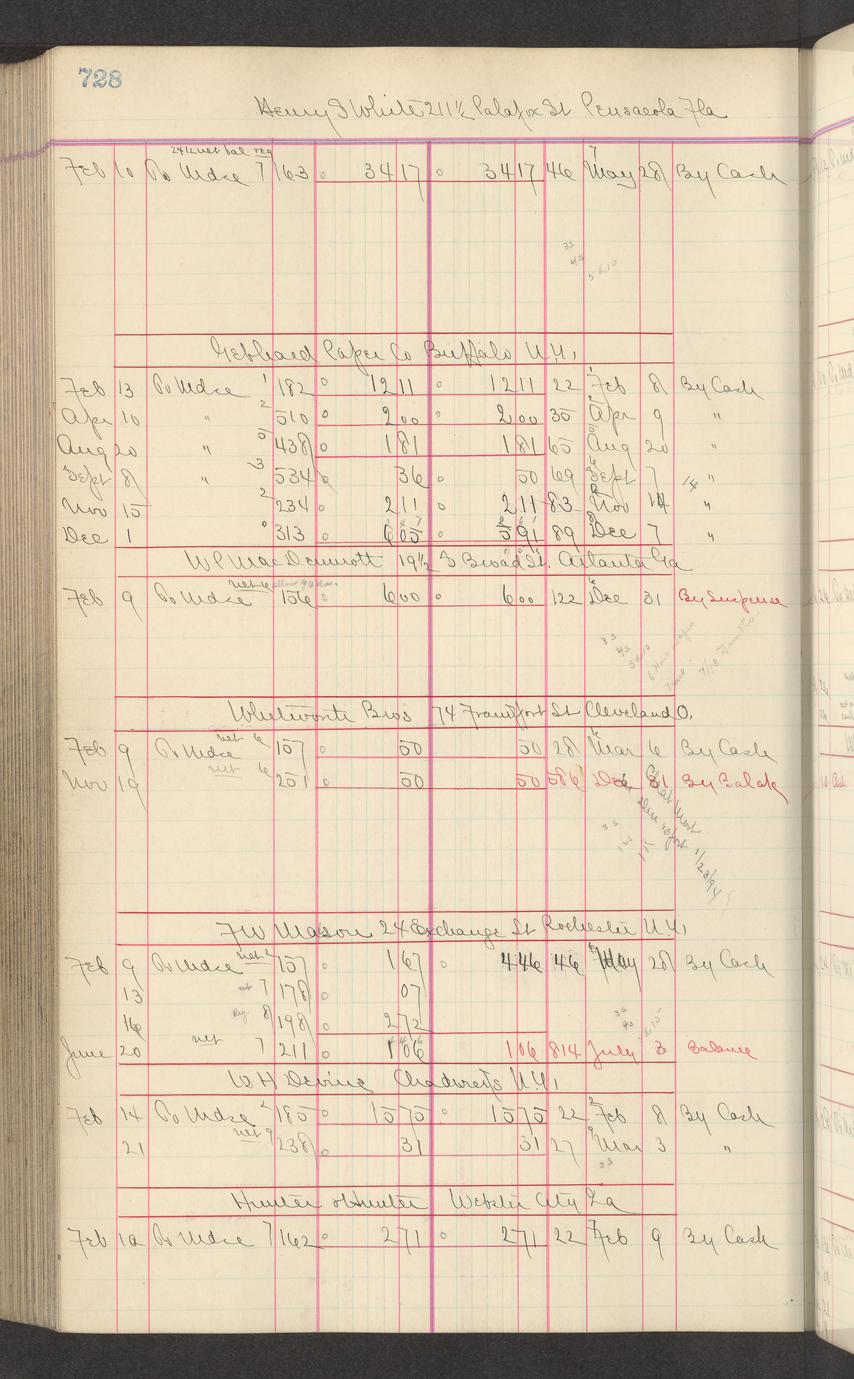 728
Henry F White 211 1/2 Palafox St Pensacola Fla
2412 net bal reg
Feb 10 To Mdse 7 163 34 17 34 17 46 7 May 28 By Cash
3s
4s
5 & 10
Gebhard Paper Co Buffalo N.Y.
Feb 13 To Mdse 1 182 12 11 12 11 22 1 Feb 8 By Cash
Apr 10 " 2 510 2 00 2 00 35 2 Apr 9 "
Aug 20 " 5 438 1 81 1 81 65 5 Aug 20 "
Sept 8 " 3 534 36 50 69 6 Sept 7 14 "
Nov 15 2 234 2 11 2 11 83 Nov 14 "
Dec 1 0 313 6 05 5 91 89 8 Dec 7 "
W P MacDermott 19 1/2 S Broad St. Atlanta Ga
net 6
Feb 9 To Mdse 156 6 00 6 00 122 6 Dec 31 By Suspense
3s
4s
5 & 10
Whitworth Bros 74 Frankfort St Cleveland O.
net 6
Feb 9 To Mdse 157 50 50 28 6 Mar 6 By Cash
net 6
Nov 19 251 50 50 586 Dec 31 By
1/23/94
3s
F W Mason 24 Exchange St Rochester N.Y.
net 2
Feb 9 To Mdse 157 1 67 4 46 46 May 28 By Cash
13 net 7 178 07
16 Reg. 8 198 2 72
June 20 net 7 211 1 06 1 06 814 July 3 Balance
3s
4s
W H Devine N.Y.
Feb 14 To Mdse 2 185 15 75 15 75 22 2 Feb 8 By Cash
21 net 9 238 31 31 27 9 Mar 3 "
3s
Hunter & Hunter Webster City Ia
Feb 10 To Mdse 7 162 2 71 2 71 22 7 Feb 9 By Cash